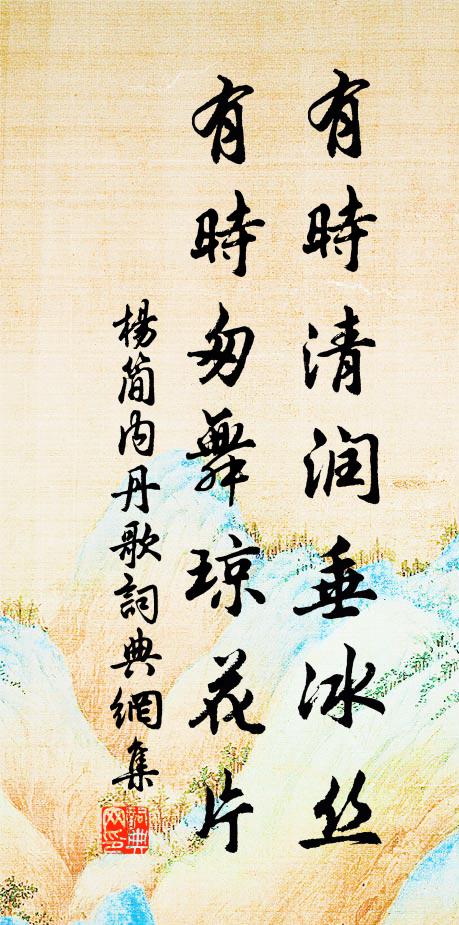 有時清润垂冰丝
有時匆舞琼花片
楊简内丹歌詞典網集
詞典网印